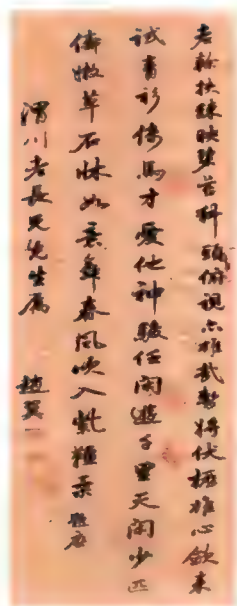 老幹扶疎映碧苔科頭俯視亦雄哉暫將伏櫪雄心歛來
試青衫倚馬才愛他神駿任閑遊千里天閑少匹
儔嫩草石牀如年春風吹入紫韁柔
渭川老長兄先生屬 趙翼